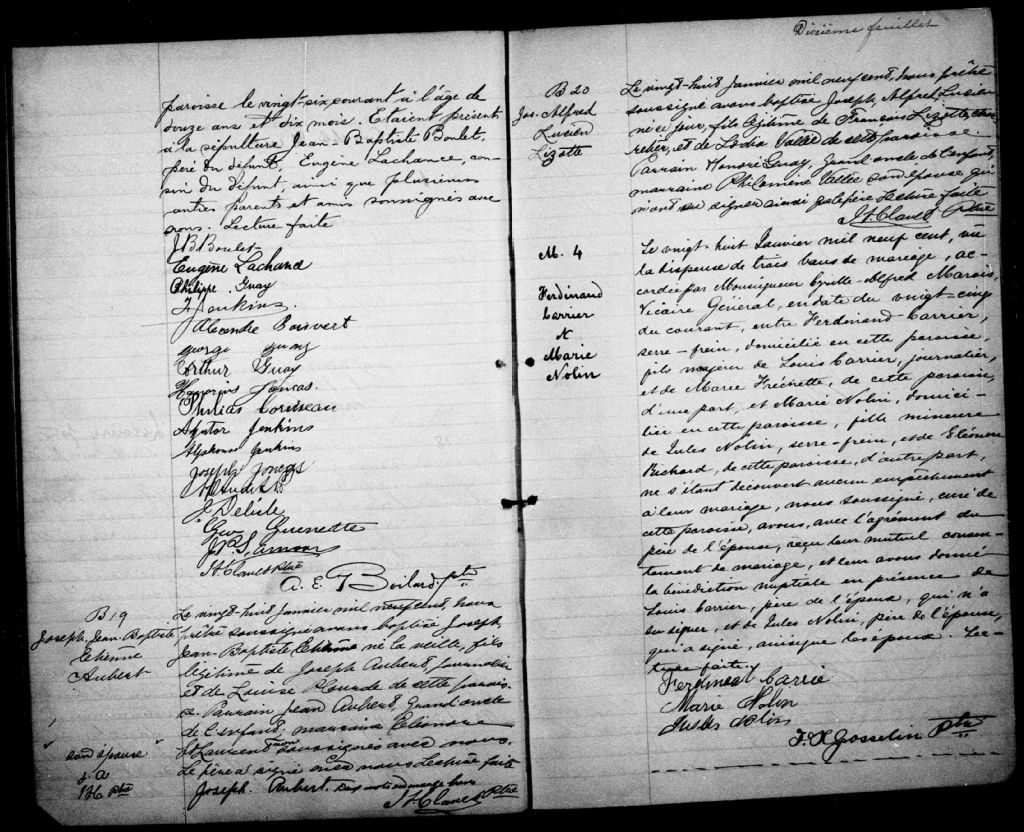 paroisse le vingt-six courant à l'âge de
douze ans et dix mois. Etaient présents
à la sépulture Jean-Baptiste Boulet,
père du défunt, Eugène Lachance, cou-
sin du défunt, ainsi que plusieurs
autres parents et amis soussignés avec
nous. Lecture faite
J B Boulet
Eugène Lachance
Philippe Guay
Alexandre Boisvert
George Guay
Arthur Guay
Philias
Jenkins
Alphonse Jenkins
Joseph
J. Delisle
Geo Guenette
H. Clavet Ptre
A. E. Boilard, ptre
B 19
Joseph, Jean-Baptiste
Etienne
Aubert
Le vingt-huit Janvier mil neuf cent, nous
prêtre soussigné avons baptisé Joseph,
Jean-Baptiste Etienne né la veille, fils
légitime de Joseph Aubert, journalier
et de Louise Plourde de cette parois-
se. Parrain Jean Aubert, Grand oncle
de l'enfant; marraine Eléonore
St Laurent soussignés avec nous.
son épouse
J. A
Ptre
Le père a signé avec nous Lecture faite
Joseph. Aubert.
J. H. Clavet Ptre
Dixième feuillet
B 20
Jos. Alfred
Lucien
Lizotte
Le vingt-huit Janvier mil neuf cent, nous prêtre
soussigné avons baptisé Joseph, Alfred Lucien
né ce jour, fils légitime de François Lizotte, char-
retier, et de Lédia Vallée de cette paroisse.
Parrain Honoré Guay, Grand oncle de l'enfant,
marraine Philomène Vallée son épouse, qui
n'ont su signer ainsi que le père Lecture faite
J. H. Clavet Ptre
M. 4
Ferdinand
Carrier
&
Marie
Nolin
Le vingt-huit Janvier mil neuf cent, vu
la dispense de trois bans de mariage, ac-
cordée par Monseigneur Cyrille-Alfred Marois,
Vicaire Général, en date du vingt-cinq
du courant, entre Ferdinand Carrier,
serre-frein, domicilié en cette paroisse,
fils majeur de Louis Carrier, journalier,
et de Marie Fréchette, de cette paroisse,
d'une part, et Marie Nolin, domici-
liée en cette paroisse, fille mineure
de Jules Nolin, serre-frein, et de Eléonore
Richard, de cette paroisse, d'autre part,
ne s'étant découvert aucun empêchement
à leur mariage, nous soussigné, curé de
cette paroisse, avons, avec l'agrément du
père de l'épouse, reçu leur mutuel consen-
tement de mariage, et leur avons donné
la bénédiction nuptiale en présence de
Louis Carrier, père de l'époux, qui n'a
su signer, et de Jules Nolin, père de l'épouse,
qui a signé, ainsi que les époux. Lec-
ture faite.
Ferdinand Carrié
Marie Nolin
Jules Nolin
F. X. Gosselin Ptre